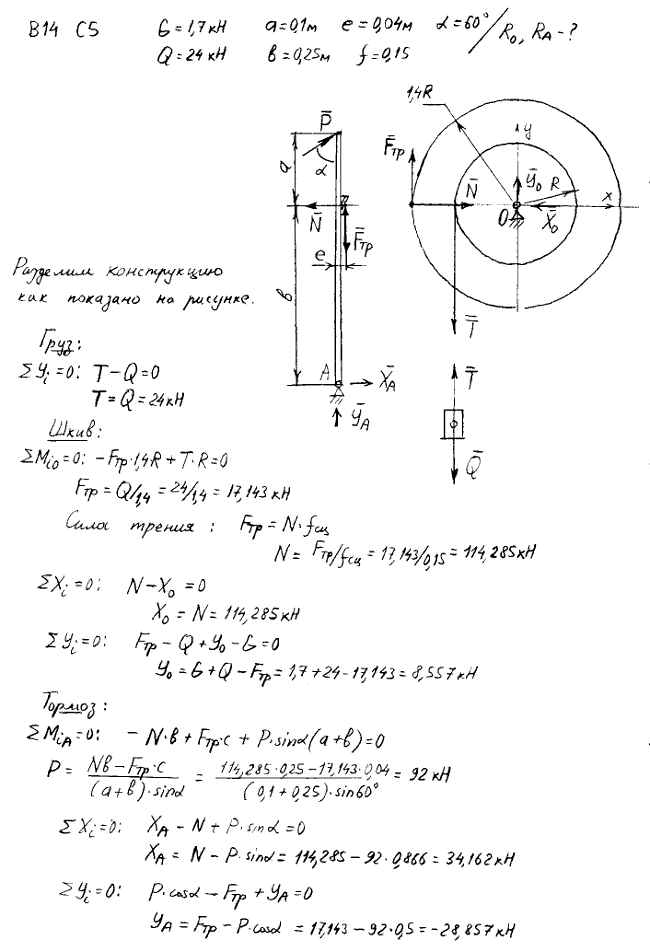 В14 С5 G = 1,7 кН a = 0,1 м e = 0,04 м α = 60° / R₀, R_A - ?
Q = 24 кН в = 0,25 м f = 0,15
1,4R
P̄
y
F̄тр
a
α
N̄
Ȳ₀
R
N̄
O
X̄₀
x
F̄тр
e
Разделим конструкцию
как показано на рисунке.
в
T̄
Груз:
ΣYᵢ=0: T - Q = 0
A
X̄_A
T̄
T = Q = 24 кН
Ȳ_A
Шкив:
Q̄
ΣMᵢ₀=0: -Fтр·1,4R + T·R = 0
Fтр = Q/1,4 = 24/1,4 = 17,143 кН
Сила трения: Fтр = N·fсц
N = Fтр/fсц = 17,143/0,15 = 114,285 кН
ΣXᵢ=0: N - X₀ = 0
X₀ = N = 114,285 кН
ΣYᵢ=0: Fтр - Q + Y₀ - G = 0
Y₀ = G + Q - Fтр = 1,7 + 24 - 17,143 = 8,557 кН
Тормоз:
ΣMᵢA=0: -N·в + Fтр·c + P·sinα(a+в) = 0
P = (Nв - Fтр·c)/((a+в)·sinα) = (114,285·0,25 - 17,143·0,04)/((0,1+0,25)·sin60°) = 92 кН
ΣXᵢ=0: X_A - N + P·sinα = 0
X_A = N - P·sinα = 114,285 - 92·0,866 = 34,162 кН
ΣYᵢ=0: P·cosα - Fтр + Y_A = 0
Y_A = Fтр - P·cosα = 17,143 - 92·0,5 = -28,857 кН